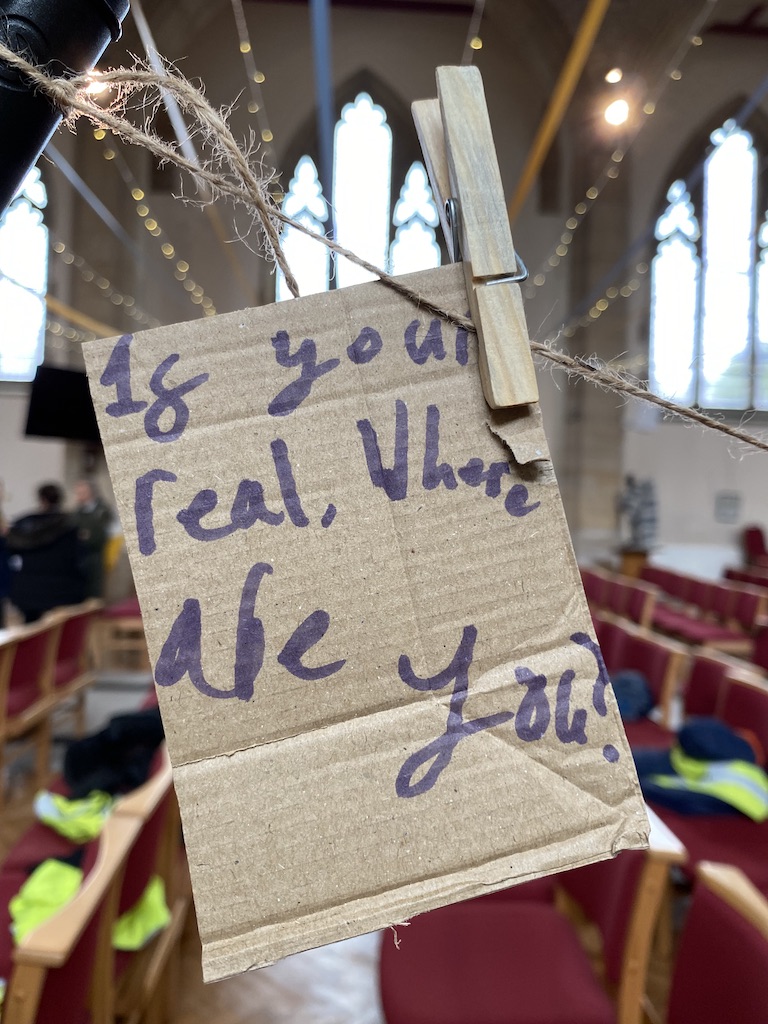 If your
real, Where
are
you?